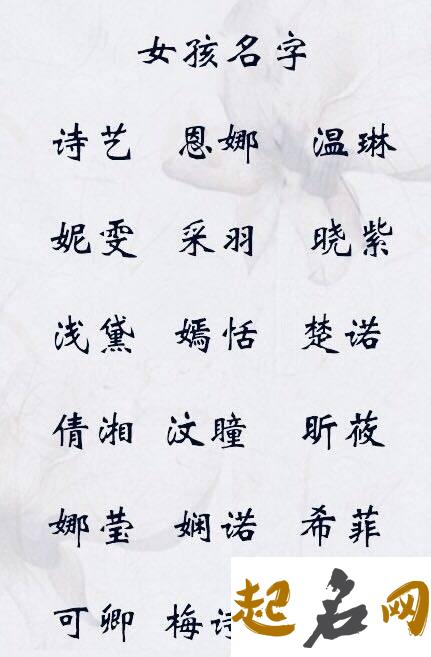 女孩名字
诗艺 恩娜 温琳
妮雯 采羽 晓紫
浅黛 嫣恬 楚诺
倩湘 汶瞳 昕莜
娜莹 娴诺 希菲
可卿 梅诗
起名网